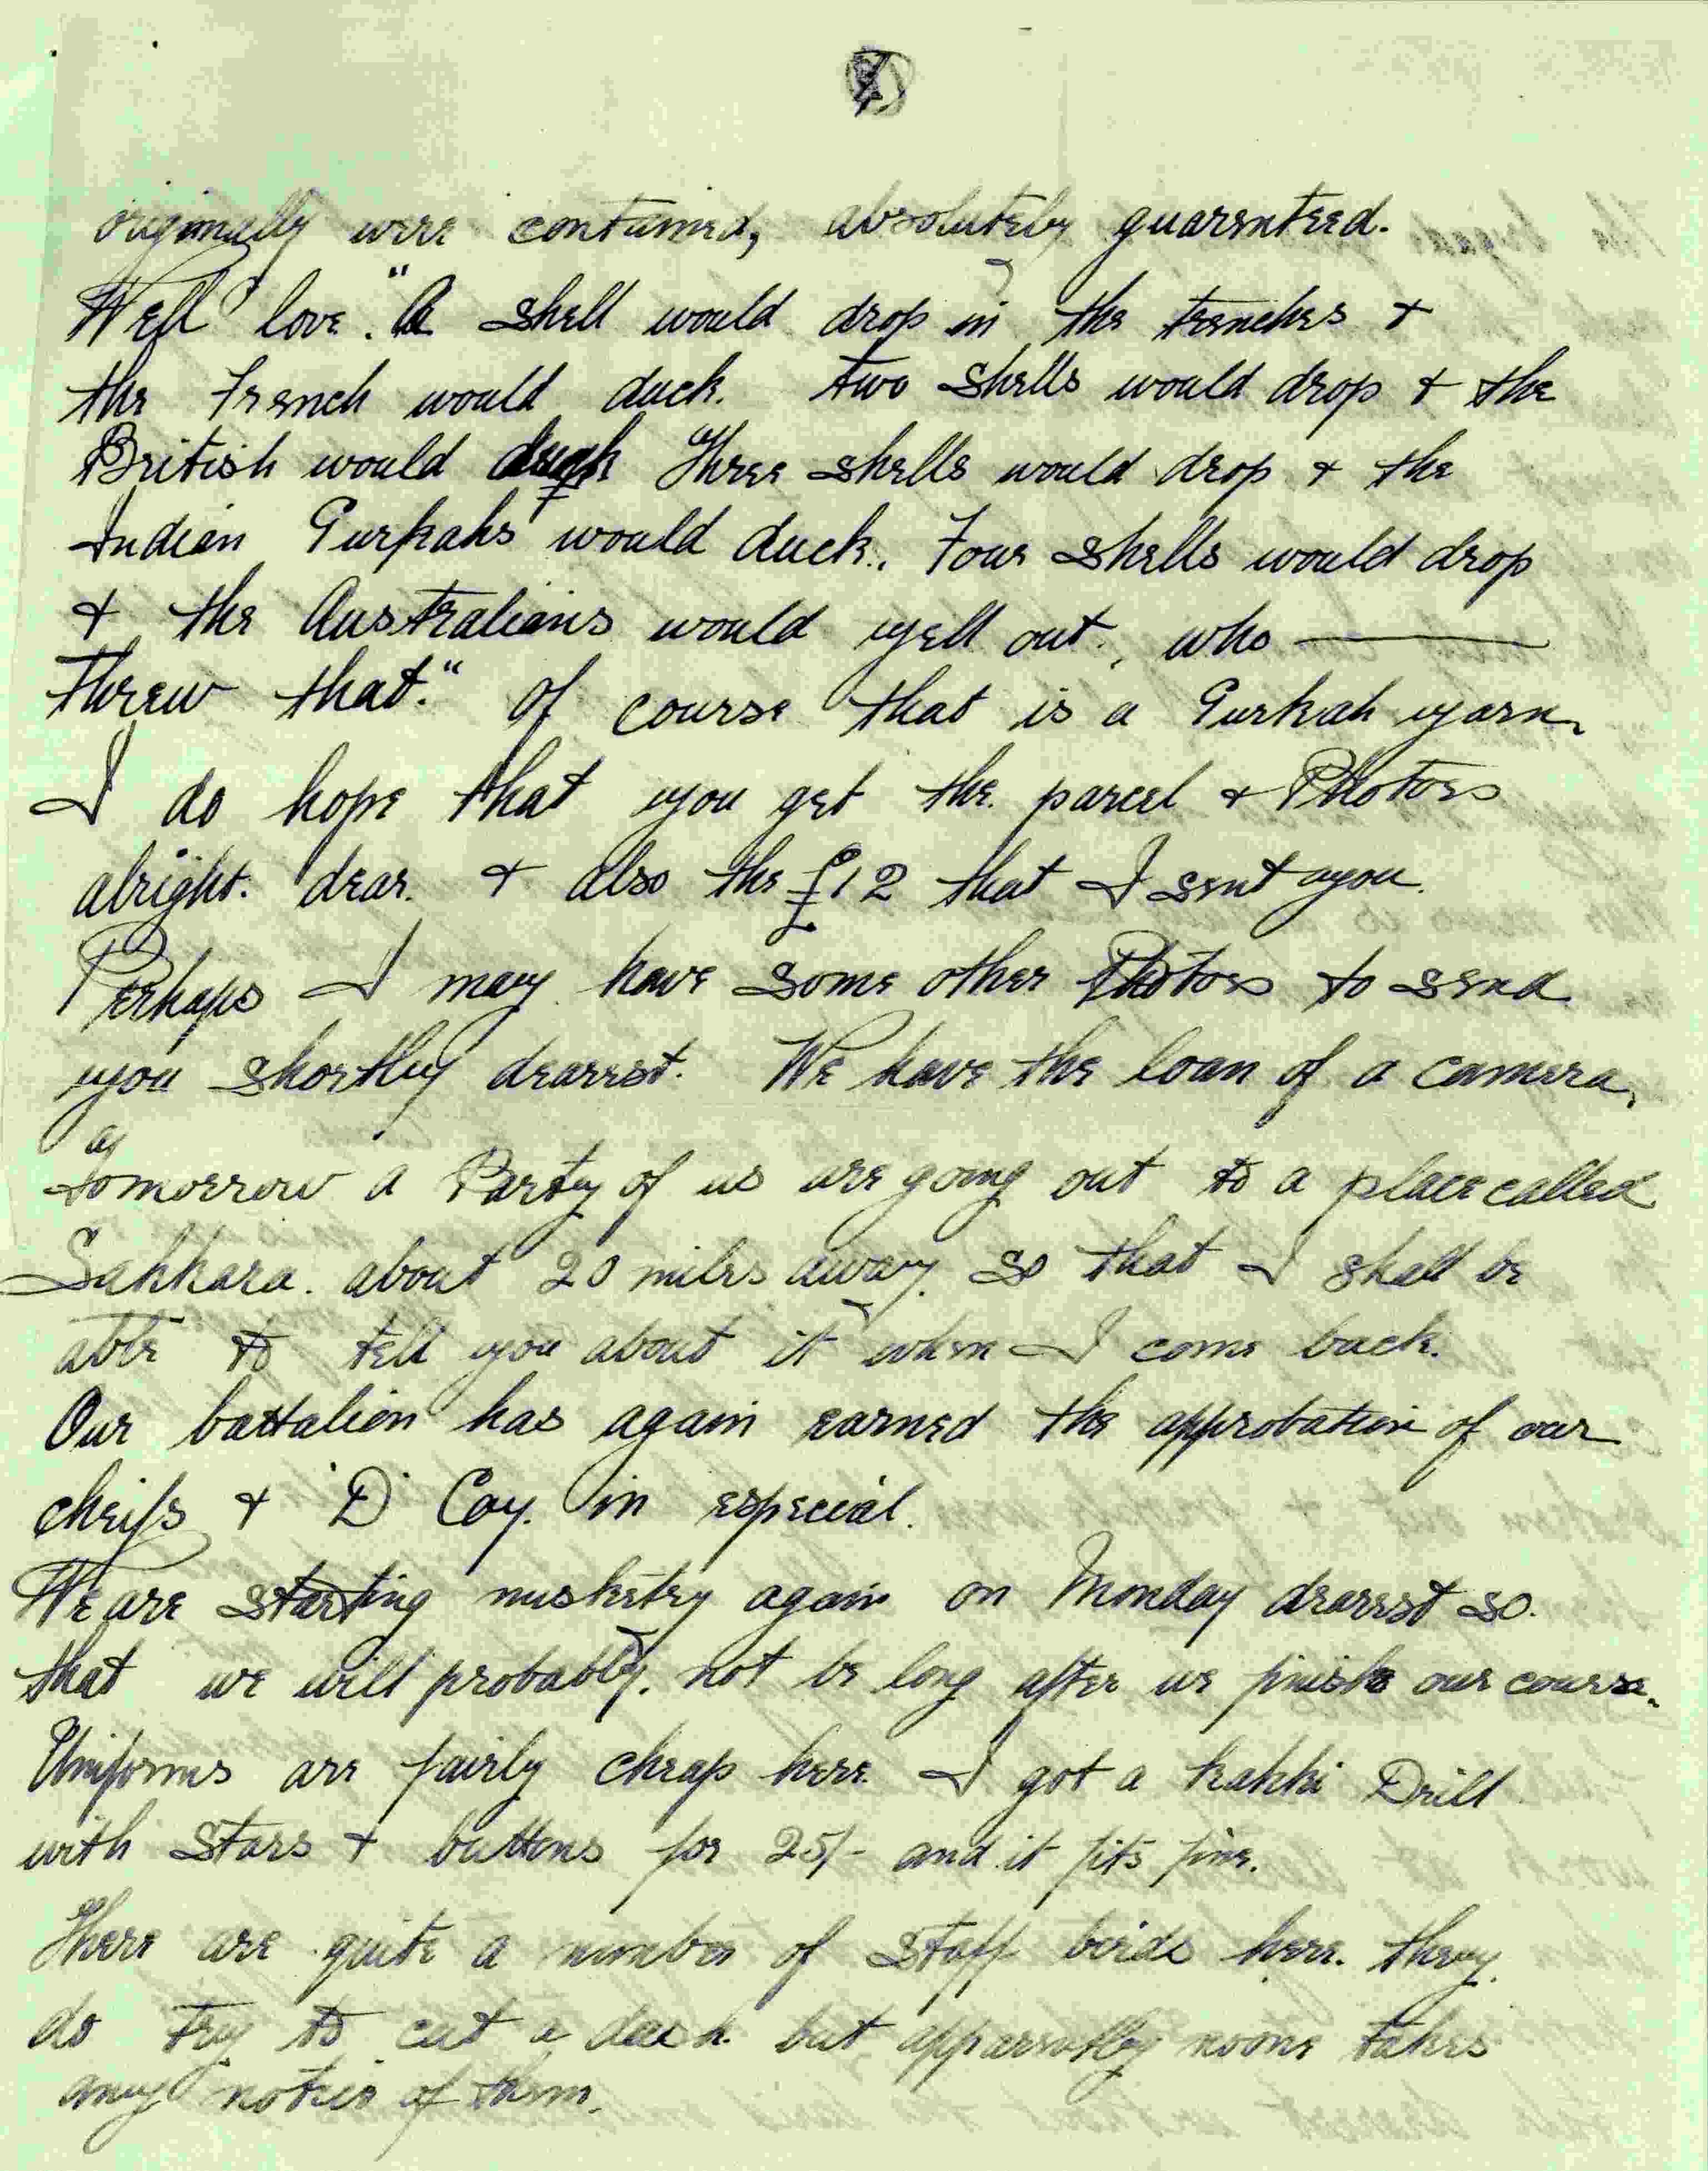 originally were contained, absolutely guarenteed.
Well love. "A shell would drop in the trenches &
the French would duck. Two shells would drop & the
British would duck Three shells would drop & the
Indian Gurkahs would duck. Four shells would drop
& the Australians would yell out, who ———
threw that." Of course that is a Gurkah yarn.
I do hope that you get the parcel & Photos
alright. dear. & also the £12 that I sent you.
Perhaps I may have some other Photos to send
you shortly dearest. We have the loan of a camera,
as
tomorrow a Party of us are going out to a place called
Sakkara. about 20 miles away. so that I shall be
able to tell you about it when I come back.
Our battalion has again earned the approbation of our
cheifs & 'D' Coy. in especial.
We are starting musketry again on Monday dearest so.
that we will probably. not be long after we finish our course.
Uniforms are fairly cheap here. I got a kakhi Drill
with Stars & buttons for 25/- and it fits fine.
There are quite a number of Staff birds here. they.
do try to cut a dash but apparently noone takes
any notice of them.